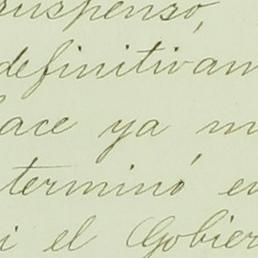 suspenso,
definitivam
ace ya m
terminó e
i el Gobier